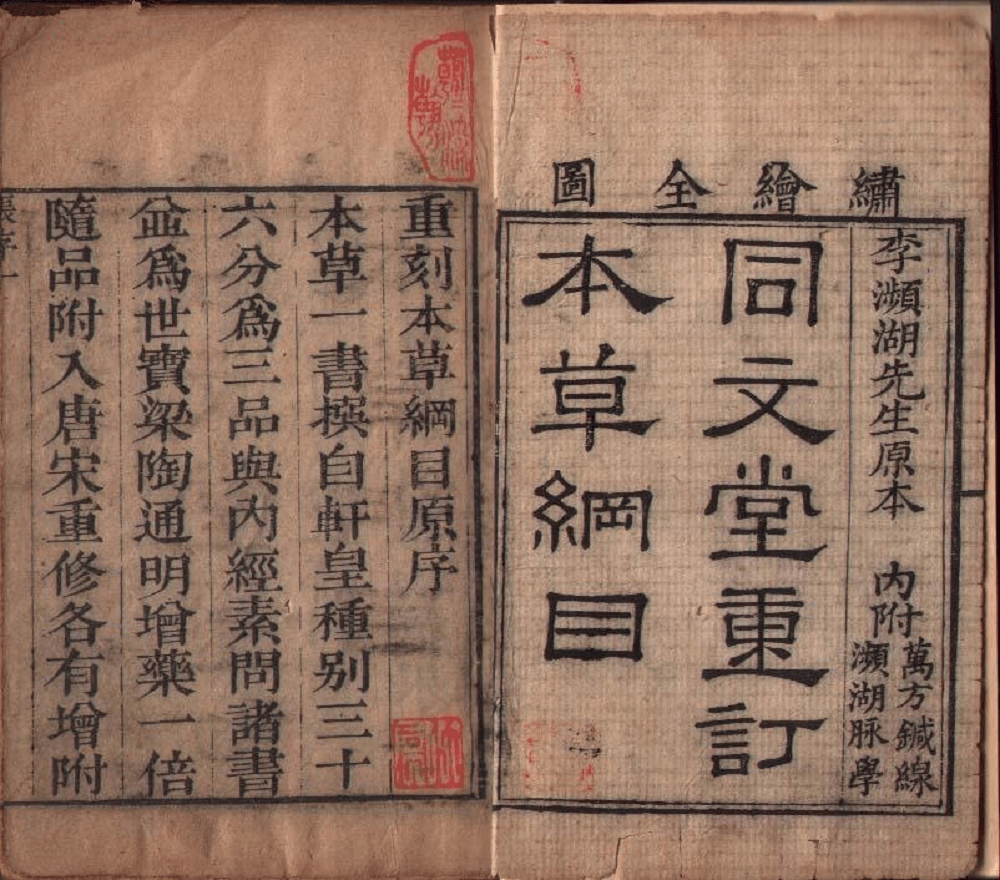 繡繪全圖
李瀕湖先生原本
內附
萬方鍼線
瀕湖脉學
同文堂重訂
本草綱目
重刻本草綱目原序
本草一書撰自軒皇種别三十
六分爲三品與内經素問諸書
並爲世寶梁陶通明增藥一倍
隨品附入唐宋重修各有增附